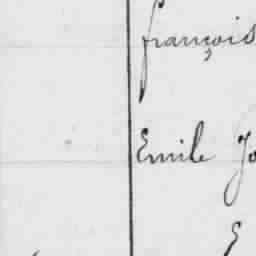 françois
Emile Jo
E